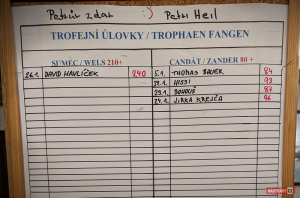 Petrův zdar :) Petri Heil
TROFEJNÍ ÚLOVKY / TROPHAEN FANGEN
SUMEC / WELS 210+
CANDÁT / ZANDER 80 +
26.1. DAVID HAVLÍČEK 240
5.1. THOMAS BAUER 84
23.1. HISSI 93
23.1. BOHOUŠ 87
24.1. JIRKA KREJČA 96